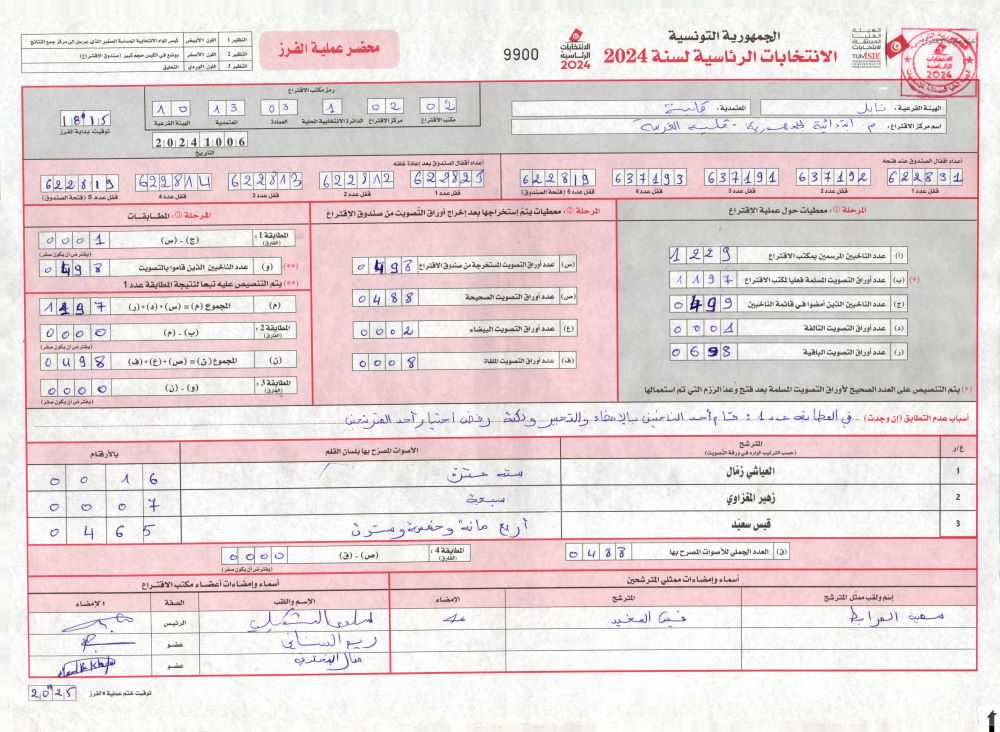 الجمهورية التونسية
الانتخابات الرئاسية لسنة 2024
الانتخابات الرئاسية 2024
9900
محضر عملية الفرز
النظير 1 اللون الأبيض
النظير 2 اللون الأزرق يوضع في الكيس حجم كبير (صندوق الاقتراع)
النظير 3 اللون الوردي التعليق
الهيئة الفرعية: نابل المعتمدية:
اسم مركز الاقتراع: م ابتدائية الجمهورية - قليبية
رمز مكتب الاقتراع
02 02 1 03 13 10
مكتب الاقتراع مركز الاقتراع الدائرة الانتخابية المحلية العمادة المعتمدية الهيئة الفرعية
18 15
توقيت بداية الفرز
20241006
التاريخ
أعداد أقفال الصندوق عند فتحه
622831 637192 637191 637193 622819
قفل 1 قفل عدد 2 قفل عدد 3 قفل عدد 4 قفل عدد 5 (فتحة الصندوق)
أعداد أقفال الصندوق بعد إعادة غلقه
622812 622813 622814 622819
قفل عدد 1 قفل عدد 2 قفل عدد 3 قفل عدد 4 قفل عدد 5 (فتحة الصندوق)
المرحلة ①: معطيات حول عملية الإقتراع
(أ) عدد الناخبين المرسمين بمكتب الاقتراع 1229
(*) (ب) عدد أوراق التصويت المسلمة فعليا لمكتب الاقتراع 1197
(ج) عدد الناخبين الذين أمضوا في قائمة الناخبين 0499
(د) عدد أوراق التصويت التالفة 0001
(ر) عدد أوراق التصويت الباقية 0698
(*) يتم التنصيص على العدد الصحيح لأوراق التصويت المسلمة بعد فتح وعدّ الرزم التي تم استعمالها
المرحلة ②: معطيات يتم إستخراجها بعد إخراج أوراق التصويت من صندوق الإقتراع
(س) عدد أوراق التصويت المستخرجة من صندوق الاقتراع 0498
(ص) عدد أوراق التصويت الصحيحة 0488
(ع) عدد أوراق التصويت البيضاء 0002
(ف) عدد أوراق التصويت الملغاة 0008
المرحلة ③: المطابقات
المطابقة 1: (الفارق) (ج) - (س) 0001
(يفترض أن يكون صفر)
(**) (و) عدد الناخبين الذين قاموا بالتصويت 0498
(**) يتم التنصيص عليه تبعا لنتيجة المطابقة عدد 1
(م) المجموع (م) = (س)+(د)+(ر) 1197
المطابقة 2: (الفارق) (ب) - (م) 0000
(يفترض أن يكون صفر)
(ن) المجموع (ن) = (ص)+(ع)+(ف) 0498
المطابقة 3: (الفارق) (و) - (ن) 0000
(يفترض أن يكون صفر)
أسباب عدم التطابق (إن وجدت) في المطابقة عدد 1: قام أحد الناخبين بالإمضاء والتحبير ولكنه رفض اختيار أحد المترشحين
ع/ر المترشح الأصوات المصرح بها بلسان القلم بالأرقام
(حسب الترتيب الوارد في ورقة التصويت)
1 العياشي زمّال ستة عشرة 0016
2 زهير المغزاوي سبعة 0007
3 قيس سعيّد أربع مائة وخمسة وستون 0465
(ق) العدد الجملي للأصوات المصرح بها 0488
المطابقة 4: (الفارق) (ص) - (ق) 0000
(يفترض أن يكون صفر)
أسماء وإمضاءات ممثلي المترشحين
إسم ولقب ممثل المترشح المترشح الإمضاء
المرابط قيس السعيد
أسماء وإمضاءات أعضاء مكتب الاقتراع
الإسم واللقب الصفة الإمضاء
سلوى الرئيس
ريم عضو
منال عضو
توقيت ختم عملية الفرز 20 25